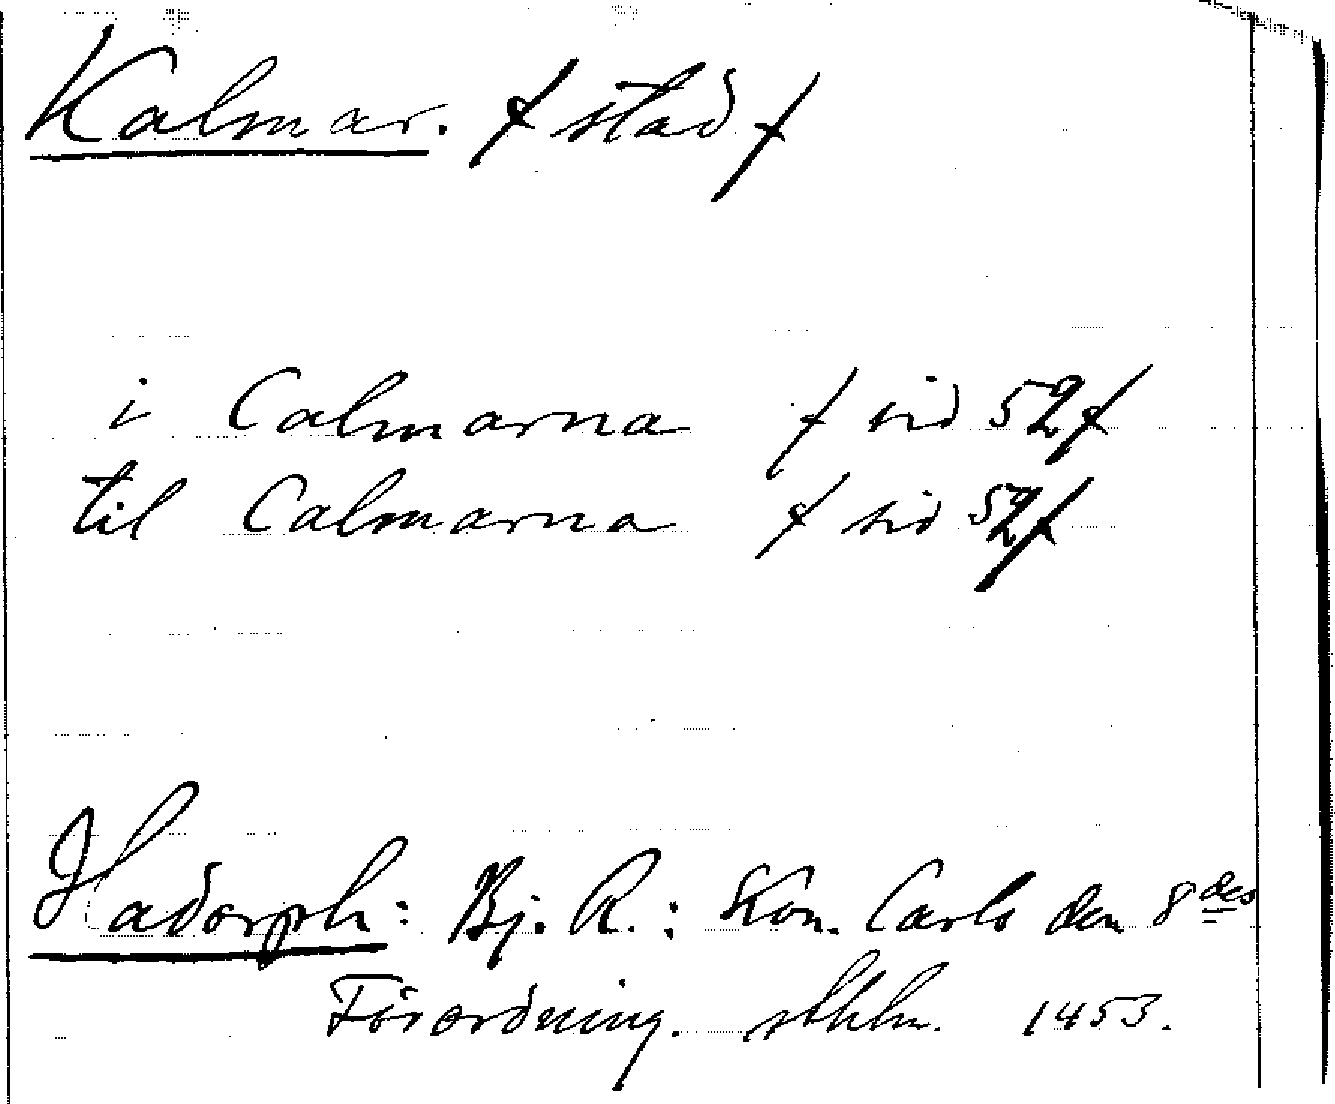 Kalmar. / stad /
i Calmarna / sid 52 /
til Calmarna / sid 52 /
Hadorph: Bj. R.: Kon. Carls den 8des
Förordning. sthlm. 1453.